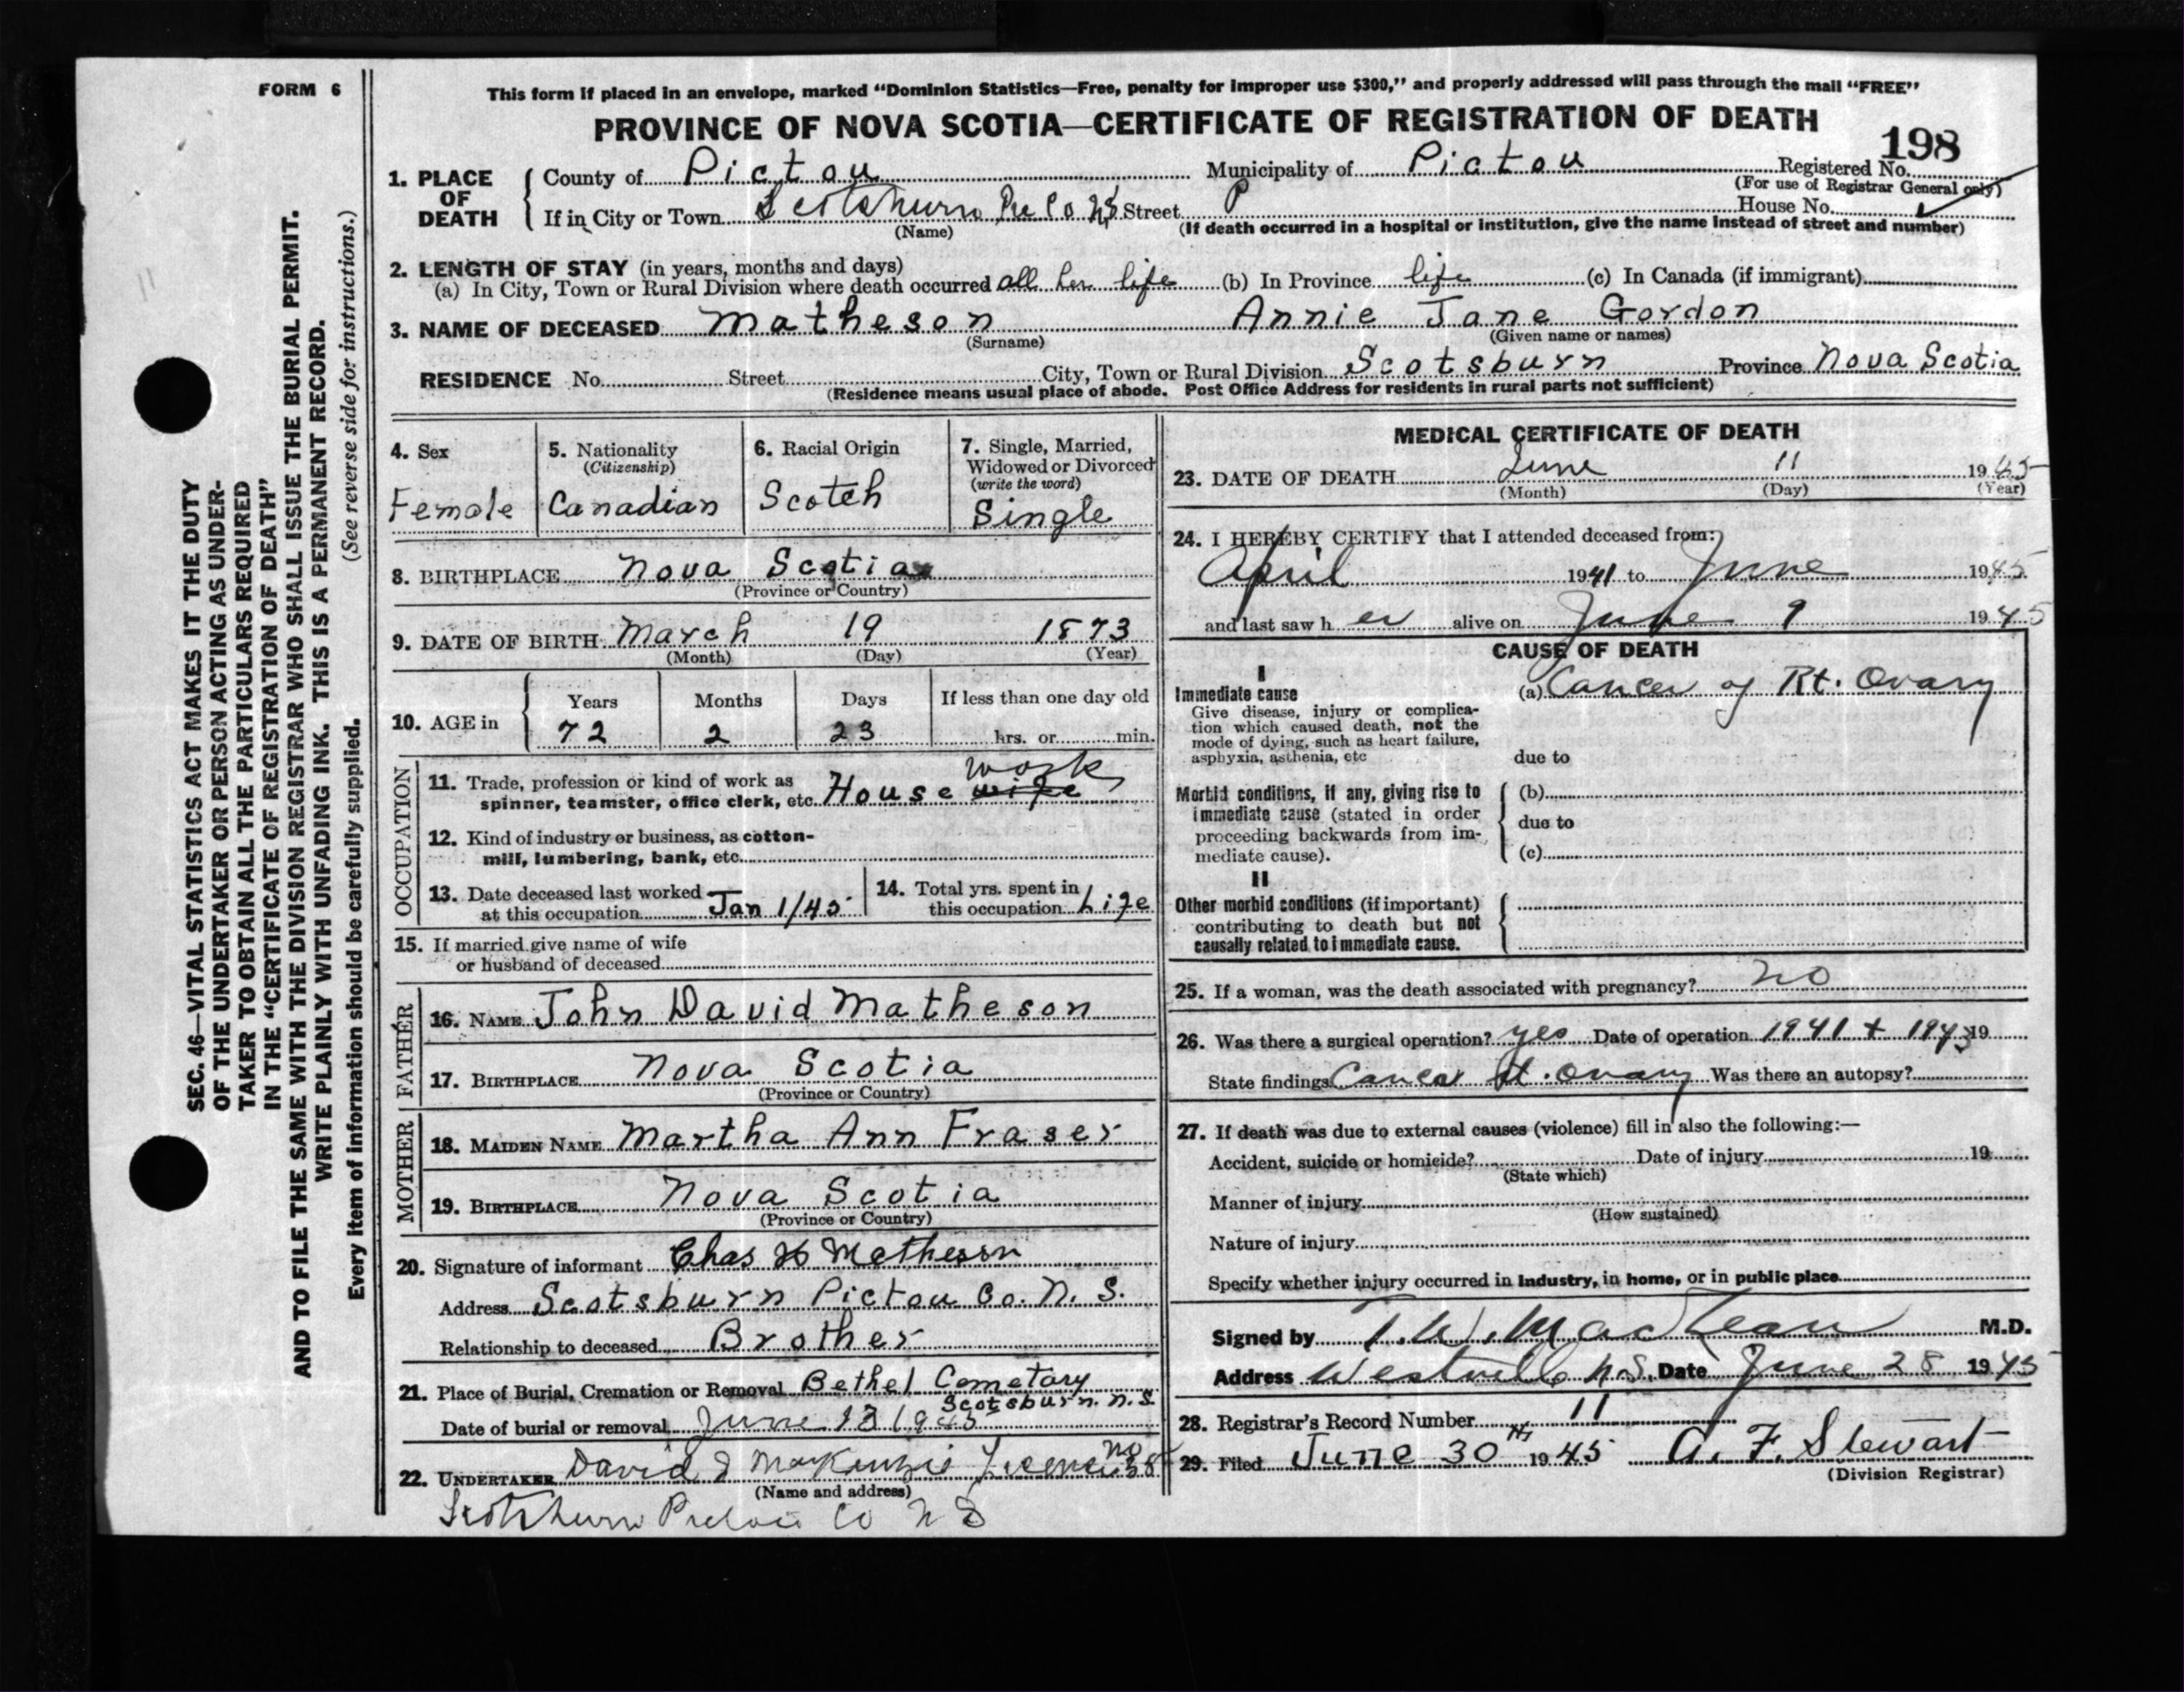 FORM 6
This form if placed in an envelope, marked "Dominion Statistics—Free, penalty for improper use $300," and properly addressed will pass through the mail "FREE"
PROVINCE OF NOVA SCOTIA—CERTIFICATE OF REGISTRATION OF DEATH
198
1. PLACE OF DEATH
County of Pictou Municipality of Pictou Registered No.
(For use of Registrar General only)
If in City or Town Scotsburn Pic Co NS Street P House No.
(Name) (If death occurred in a hospital or institution, give the name instead of street and number)
2. LENGTH OF STAY (in years, months and days)
(a) In City, Town or Rural Division where death occurred all her life (b) In Province life (c) In Canada (if immigrant)
3. NAME OF DECEASED Matheson Annie Jane Gordon
(Surname) (Given name or names)
RESIDENCE No. Street City, Town or Rural Division Scotsburn Province Nova Scotia
(Residence means usual place of abode. Post Office Address for residents in rural parts not sufficient)
SEC. 46—VITAL STATISTICS ACT MAKES IT THE DUTY
OF THE UNDERTAKER OR PERSON ACTING AS UNDER-
TAKER TO OBTAIN ALL THE PARTICULARS REQUIRED
IN THE "CERTIFICATE OF REGISTRATION OF DEATH"
AND TO FILE THE SAME WITH THE DIVISION REGISTRAR WHO SHALL ISSUE THE BURIAL PERMIT.
WRITE PLAINLY WITH UNFADING INK. THIS IS A PERMANENT RECORD.
(See reverse side for instructions.)
Every item of information should be carefully supplied.
11
4. Sex
Female
5. Nationality
(Citizenship)
Canadian
6. Racial Origin
Scotch
7. Single, Married,
Widowed or Divorced
(write the word)
Single
8. BIRTHPLACE Nova Scotia
(Province or Country)
9. DATE OF BIRTH March 19 1873
(Month) (Day) (Year)
10. AGE in
Years Months Days If less than one day old
72 2 23 hrs. or min.
OCCUPATION
11. Trade, profession or kind of work as
spinner, teamster, office clerk, etc. House wife work
12. Kind of industry or business, as cotton-
mill, lumbering, bank, etc.
13. Date deceased last worked
at this occupation Jan 1/45
14. Total yrs. spent in
this occupation Life
15. If married give name of wife
or husband of deceased
FATHER
16. NAME John David Matheson
17. BIRTHPLACE Nova Scotia
(Province or Country)
MOTHER
18. MAIDEN NAME Martha Ann Fraser
19. BIRTHPLACE Nova Scotia
(Province or Country)
20. Signature of informant Chas H Matheson
Address Scotsburn Pictou Co. N. S.
Relationship to deceased Brother
21. Place of Burial, Cremation or Removal Bethel Cemetary
Scotsburn. N. S.
Date of burial or removal June 13 1945
22. UNDERTAKER David J MacKenzie License No 38
(Name and address)
Scotsburn Pictou Co N S
MEDICAL CERTIFICATE OF DEATH
23. DATE OF DEATH June 11 1945
(Month) (Day) (Year)
24. I HEREBY CERTIFY that I attended deceased from:
April 1941 to June 1945
and last saw h er alive on June 9 1945
CAUSE OF DEATH
I
Immediate cause
Give disease, injury or complica-
tion which caused death, not the
mode of dying, such as heart failure,
asphyxia, asthenia, etc
(a) Cancer of Rt. Ovary
due to
Morbid conditions, if any, giving rise to
immediate cause (stated in order
proceeding backwards from im-
mediate cause).
(b)
due to
(c)
II
Other morbid conditions (if important)
contributing to death but not
causally related to immediate cause.
25. If a woman, was the death associated with pregnancy? no
26. Was there a surgical operation? yes Date of operation 1941 + 1943 19
State findings Cancer rt. ovary Was there an autopsy?
27. If death was due to external causes (violence) fill in also the following:—
Accident, suicide or homicide? Date of injury 19
(State which)
Manner of injury
(How sustained)
Nature of injury
Specify whether injury occurred in industry, in home, or in public place
Signed by T. W. MacLean M.D.
Address Westville N.S. Date June 28 1945
28. Registrar's Record Number 11
29. Filed June 30th 1945 A. F. Stewart
(Division Registrar)